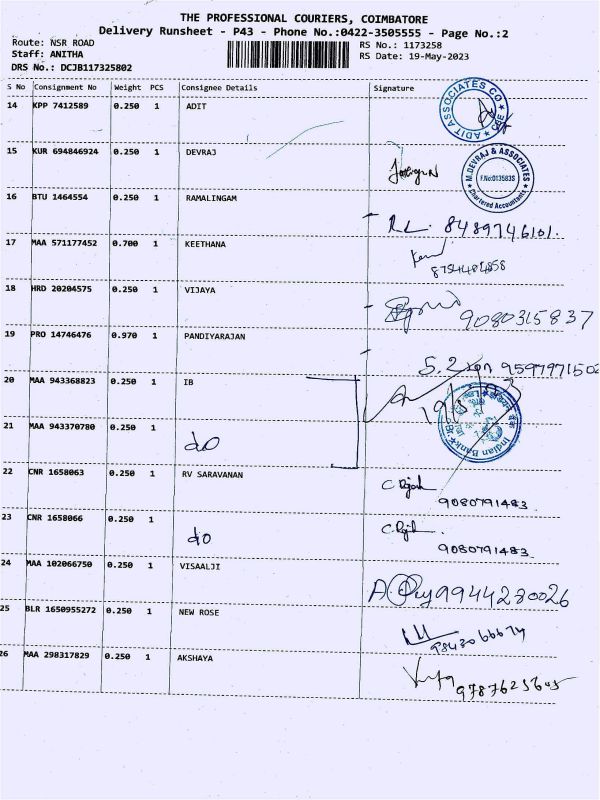 THE PROFESSIONAL COURIERS, COIMBATORE
Delivery Runsheet - P43 - Phone No.:0422-3505555 - Page No.:2
Route: NSR ROAD
RS No.: 1173258
Staff: ANITHA
RS Date: 19-May-2023
DRS No.: DCJB117325802
S No Consignment No Weight PCS Consignee Details Signature
14 KPP 7412589 0.250 1 ADIT
ADIT ASSOCIATES CO CBE
15 KUR 694846924 0.250 1 DEVRAJ
M.DEVRAJ & ASSOCIATES
F.No:013583S
Chartered Accountants
16 BTU 1464554 0.250 1 RAMALINGAM
R.L. 8489746101.
17 MAA 571177452 0.700 1 KEETHANA
8754484858
18 HRD 20204575 0.250 1 VIJAYA
9080315837
19 PRO 14746476 0.970 1 PANDIYARAJAN
9597971502
20 MAA 943368823 0.250 1 IB
Indian Bank
21 MAA 943370780 0.250 1
do
22 CNR 1658063 0.250 1 RV SARAVANAN
9080791483
23 CNR 1658066 0.250 1
do
9080791483
24 MAA 102066750 0.250 1 VISAALJI
9944280026
25 BLR 1650955272 0.250 1 NEW ROSE
26 MAA 298317829 0.250 1 AKSHAYA